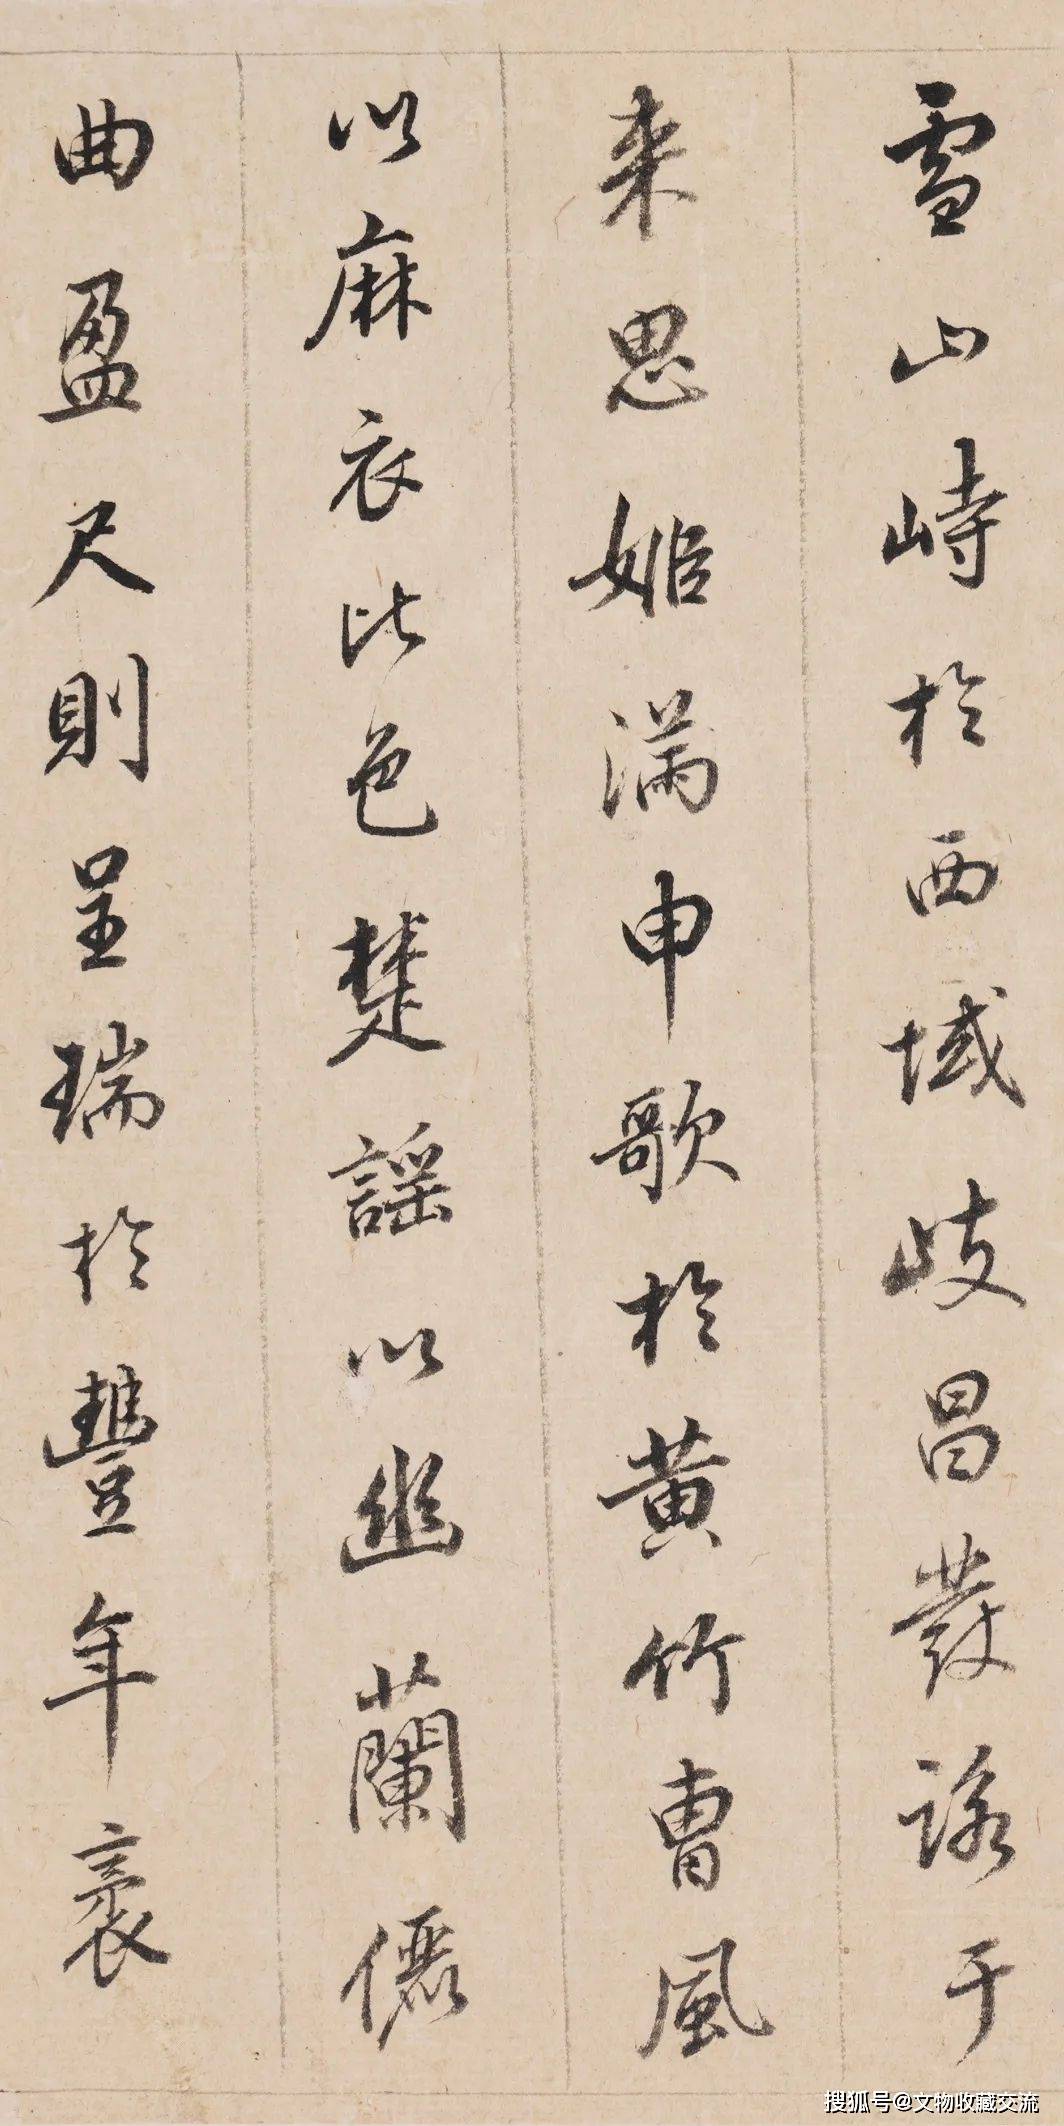 雪山峙於西域岐昌發詠于
来思姬满申歌於黄竹曹風
以麻衣比色楚謡以幽蘭儷
曲盈尺則呈瑞於豐年袤
搜狐号@文物收藏交流